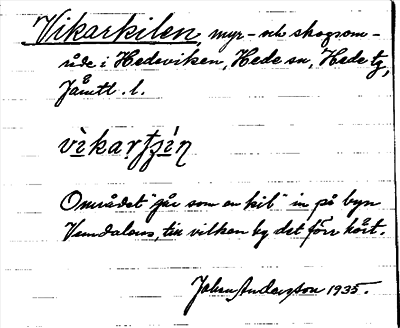 Vikarkilen, myr- och skogsom-
råde i Hedeviken, Hede sn, Hede tg,
Jämtl. l.
vìkarţʂìn
Området "går som en kil" in på byn
Vemdalens, till vilken by det förr hört.
Johan Anderzon 1935.